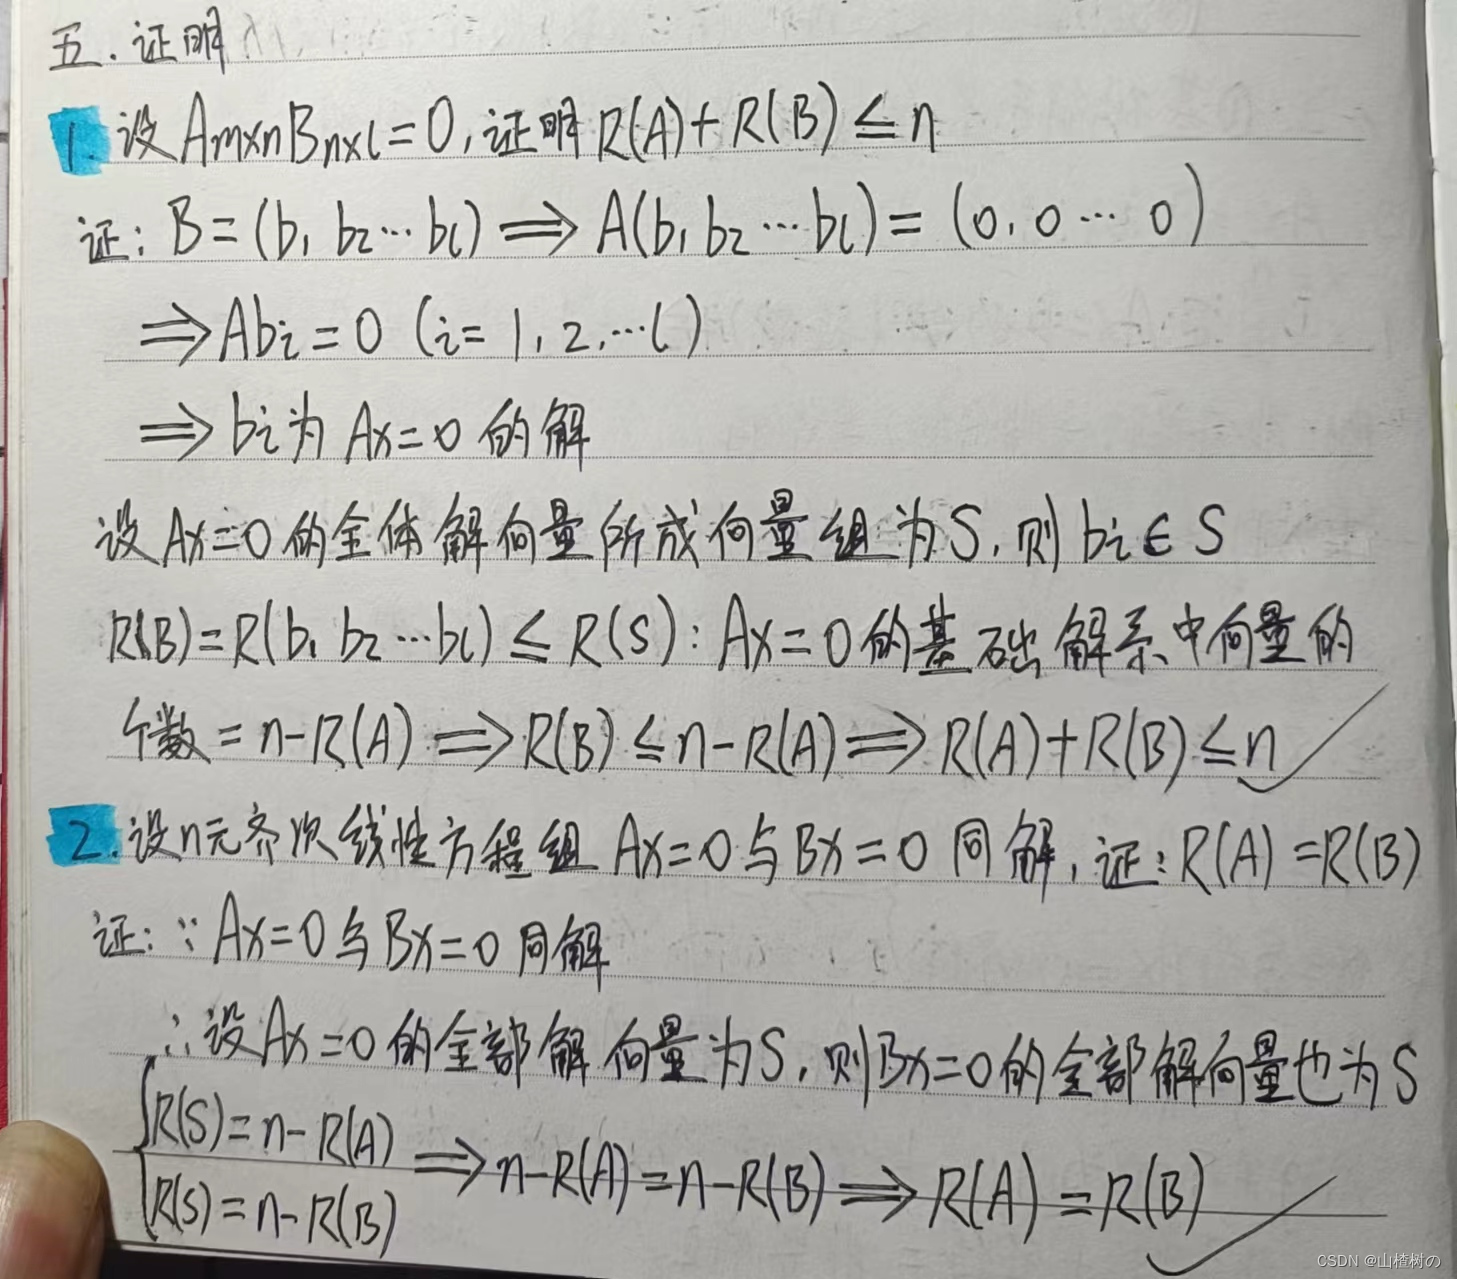 五.证明
1.设Am×nBn×l=0,证明R(A)+R(B)≤n
证:B=(b1 b2…bl)⟹A(b1 b2…bl)=(0,0…0)
⟹Abi=0(i=1,2,…l)
⟹bi为Ax=0的解
设Ax=0的全体解向量所成向量组为S,则bi∈S
R(B)=R(b1 b2…bl)≤R(S):Ax=0的基础解系中向量的
个数=n-R(A)⟹R(B)≤n-R(A)⟹R(A)+R(B)≤n
2.设n元齐次线性方程组Ax=0与Bx=0同解,证:R(A)=R(B)
证:∵Ax=0与Bx=0同解
∴设Ax=0的全部解向量为S,则Bx=0的全部解向量也为S
{R(S)=n-R(A)
R(S)=n-R(B)
⟹n-R(A)=n-R(B)⟹R(A)=R(B)
CSDN @山楂树の